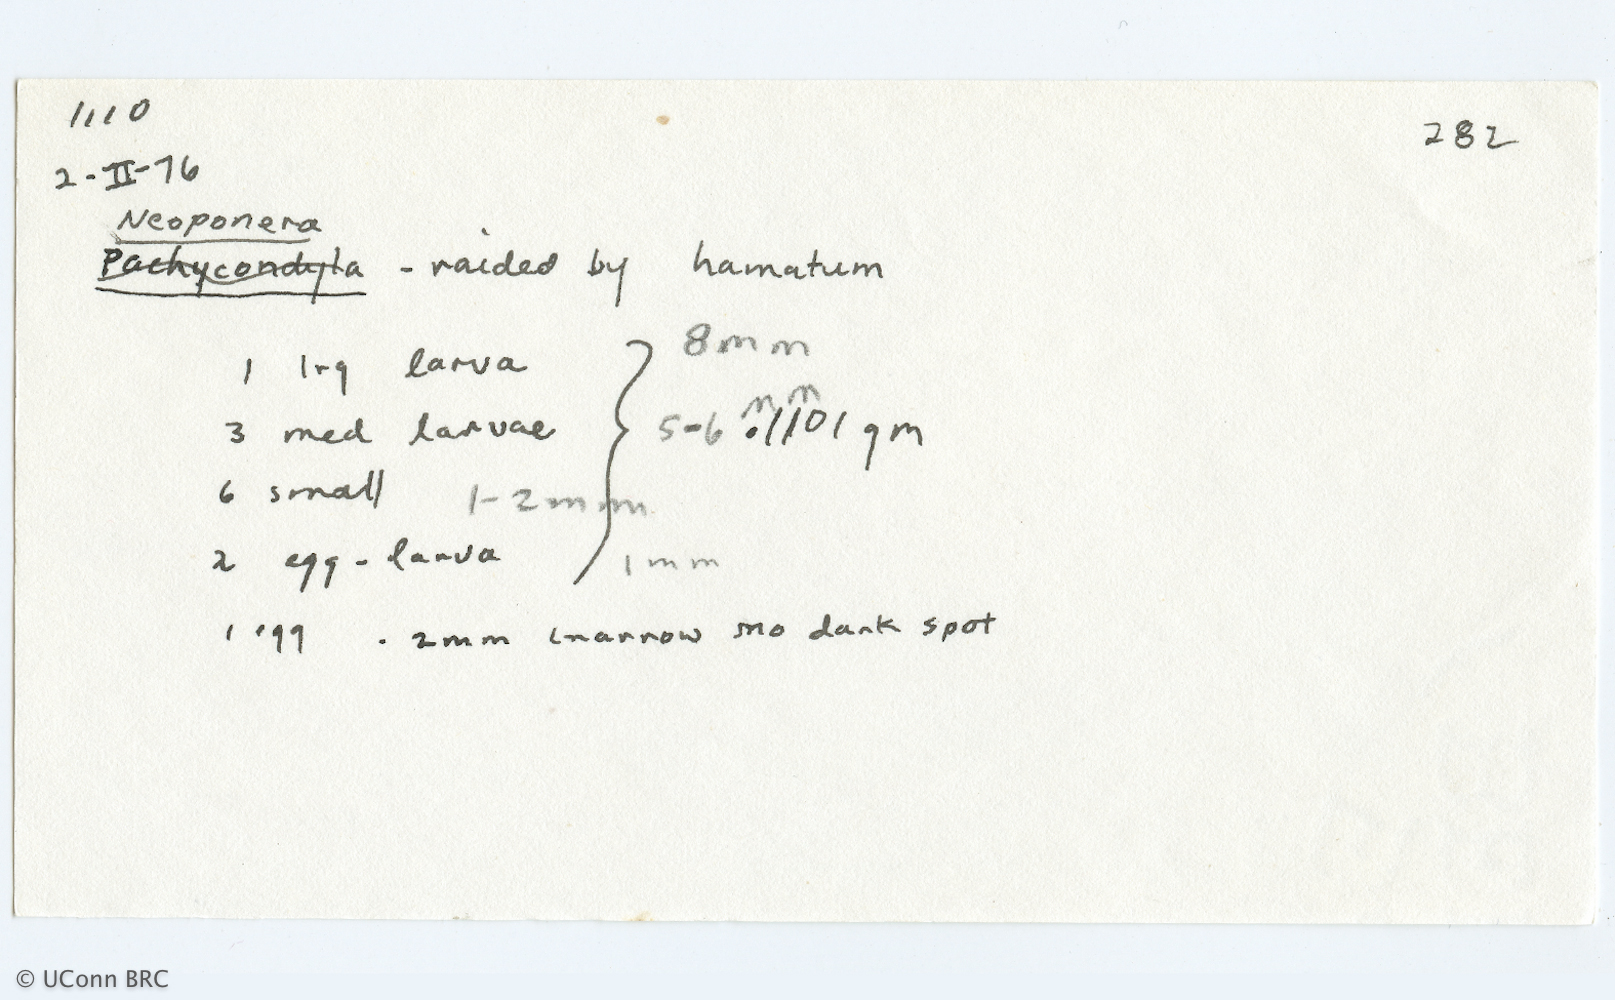 1110
282
2-II-76
Neoponera
Pachycondyla - raided by hamatum
1 lrg larva 8mm
3 med larvae 5-6 mm .1101 gm
6 small 1-2mm
2 egg-larva 1mm
1 egg . 2mm narrow no dark spot
© UConn BRC